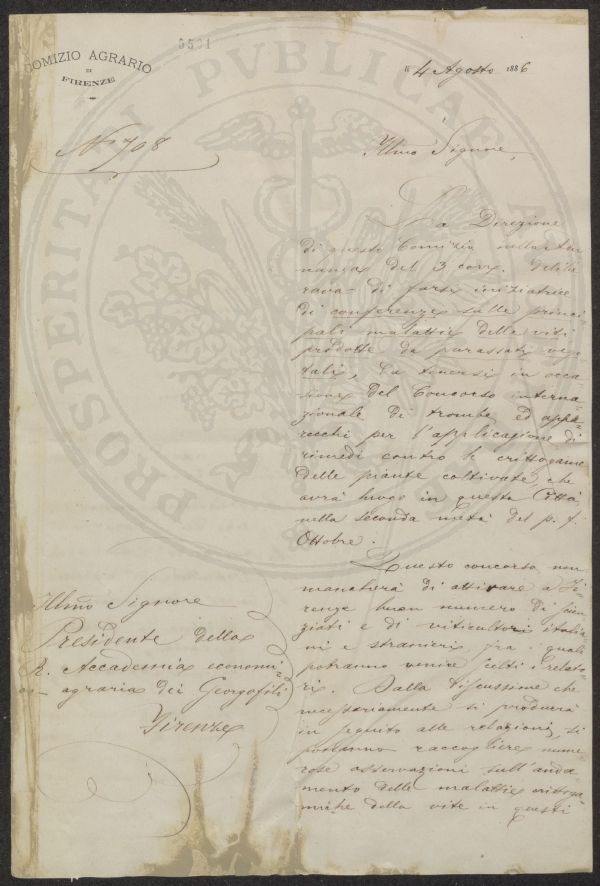 5531
COMIZIO AGRARIO
DI
FIRENZE
li 4 Agosto 1886
N° 708
Illmo Signore,
La Direzione
di questo Comizio nell'adu-
nanza del 3 corr. delibe
rava di farsi iniziatrice
di conferenze sulle princi-
pali malattie delle viti
prodotte da parassiti vege-
tali, da tenersi in occa-
sione del Concorso interna-
zionale di trombe ed appa-
recchi per l'applicazione di
rimedi contro le crittogame
delle piante coltivate, che
avrà luogo in questa Città,
nella seconda metà del p. f.
Ottobre.
Questo concorso non
mancherà di attirare a Fi-
renze buon numero di scien
ziati e di viticultori italia-
ni e stranieri, fra i quali
potranno venire scelti i relato-
ri. Dalla discussione che
necessariamente si produrrà
in seguito alle relazioni, si
potranno raccogliere nume-
rose osservazioni sull'anda-
mento delle malattie crittoga-
miche della vite in questi
Illmo Signore
Presidente della
R. Accademia economi-
co-agraria dei Georgofili
Firenze
PROSPERITATI PVBLICAE